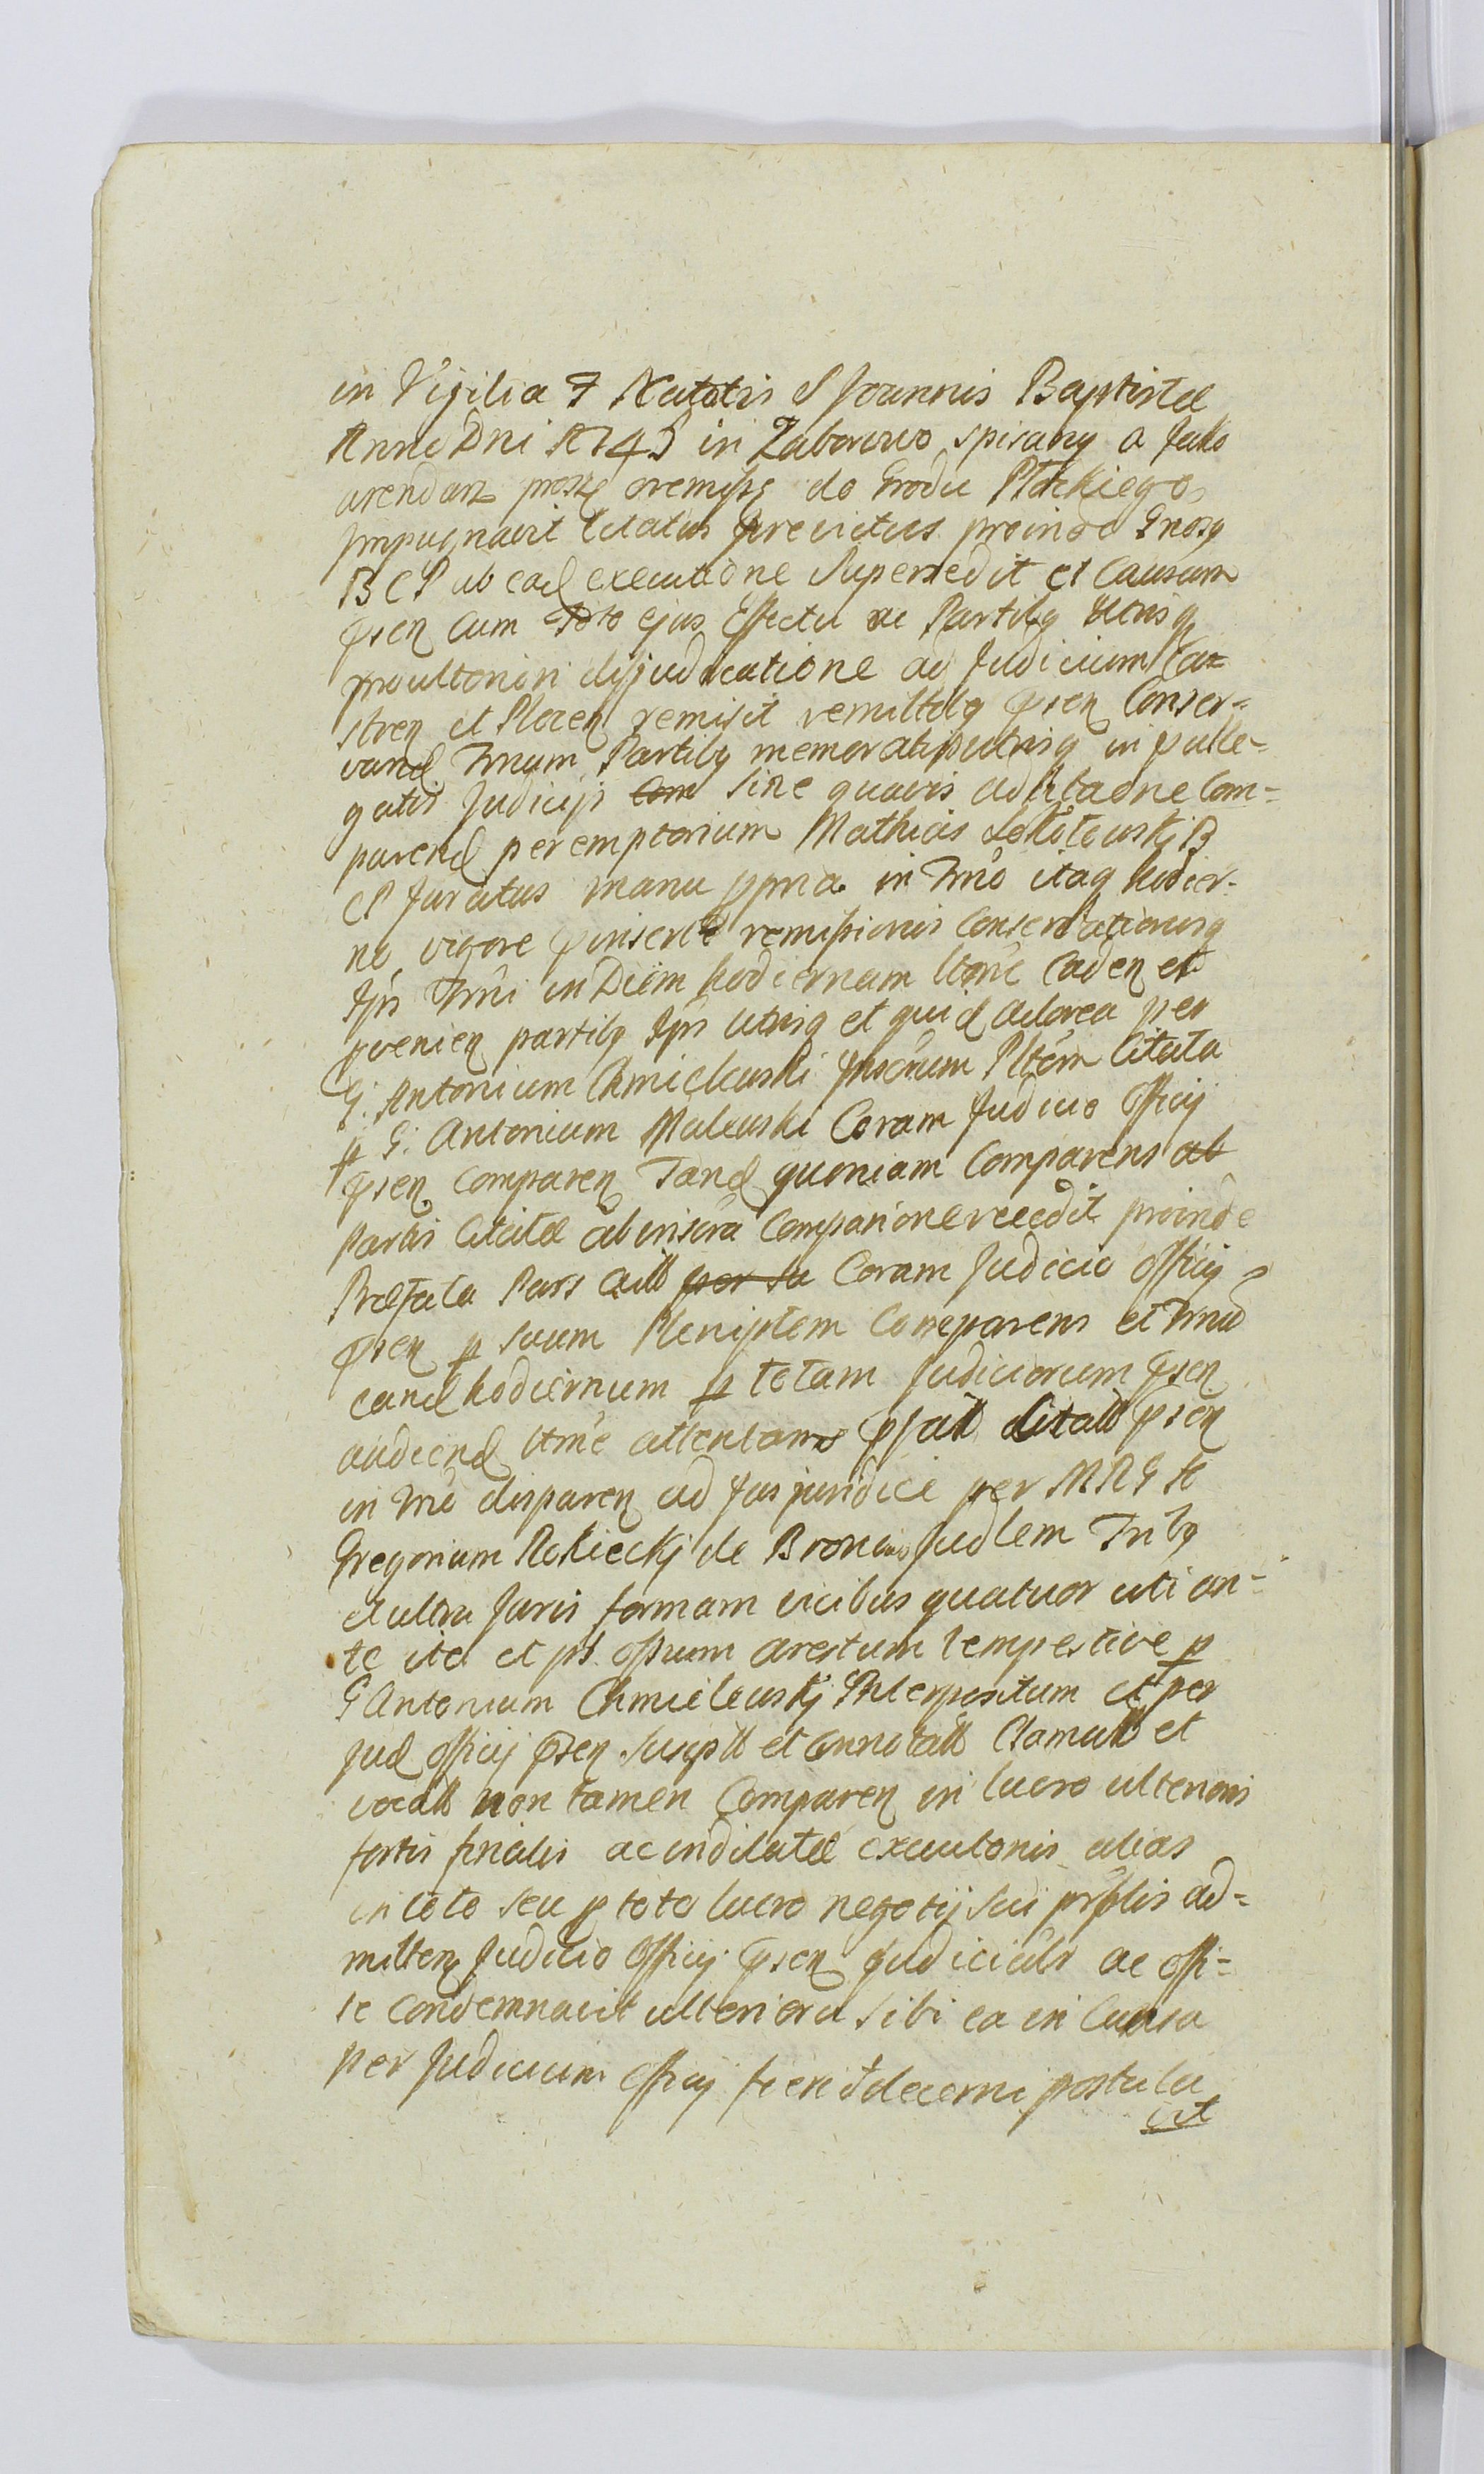 in Vigilia F Natotis S Joannis Baptistæ
Anno Dni 1745 in Zaborowo spisany a jako
arendarz proszę oremissę do Grodu Płockiego
Impugnavit Citatus previctus proinde Gnosq
B C P ab ead executione Supersedit et Causam
pñsen cum toto ejus Effectu ac Partibq utrisq
pro ulteriori dijudicatione ad Judicium Ca=
stren et Plocen remisit remittitq pñsen Conser=
vand Trnum Partibq memoratis utrisq in pñalle=
gatis Judicijs sine quavis adcitatione Com=
parend peremptorium Mathias B
C P Juratus manu ppria in Trno itaq hodier-
no vigore pinsertæ remissionis Conservationisq
Ipsi Trni in Diem hodiernum caden et
pvenien partibq Ipsis utrisq et quid adorea per
G. Antonium Chmielewski Citata
p G. Antonium Malewski Coram Judicio Officij
pñsen comparen Tand quoniam Comparens ab
partis Citatæ ab comparione recedit proinde
Præfata Pars per Coram Judicio officij
pñsen p suum Pleniptem Comparens et Trnum
cand hodiernum p totam Judiciorum pñsen
audiend attentans pfatt Citatt pñsen
in Trno disparen ad Jus juridice per M R G H
Gregorium Rokiecki de Judlem Tribq
et ultra Juris formam vicibus quatuor uti an-
te ita et pt arestum tempestive p
G Antonium Chmielewskj Interpositum et per
Jud officij pñsen suscptt et annotatt Clamatt et
vocatt non tamen Comparen in lucro ulterioris
fortis finalis ac indilatæ executonis alias
in toto seu p toto lucro negotij sui prplis ad=
mitten Judicio Officij pñsen Judicialr ac offi=
se condemnavit ulteriora sibi ea in Causa
per Judicium officij fieri & decerni postula
vit